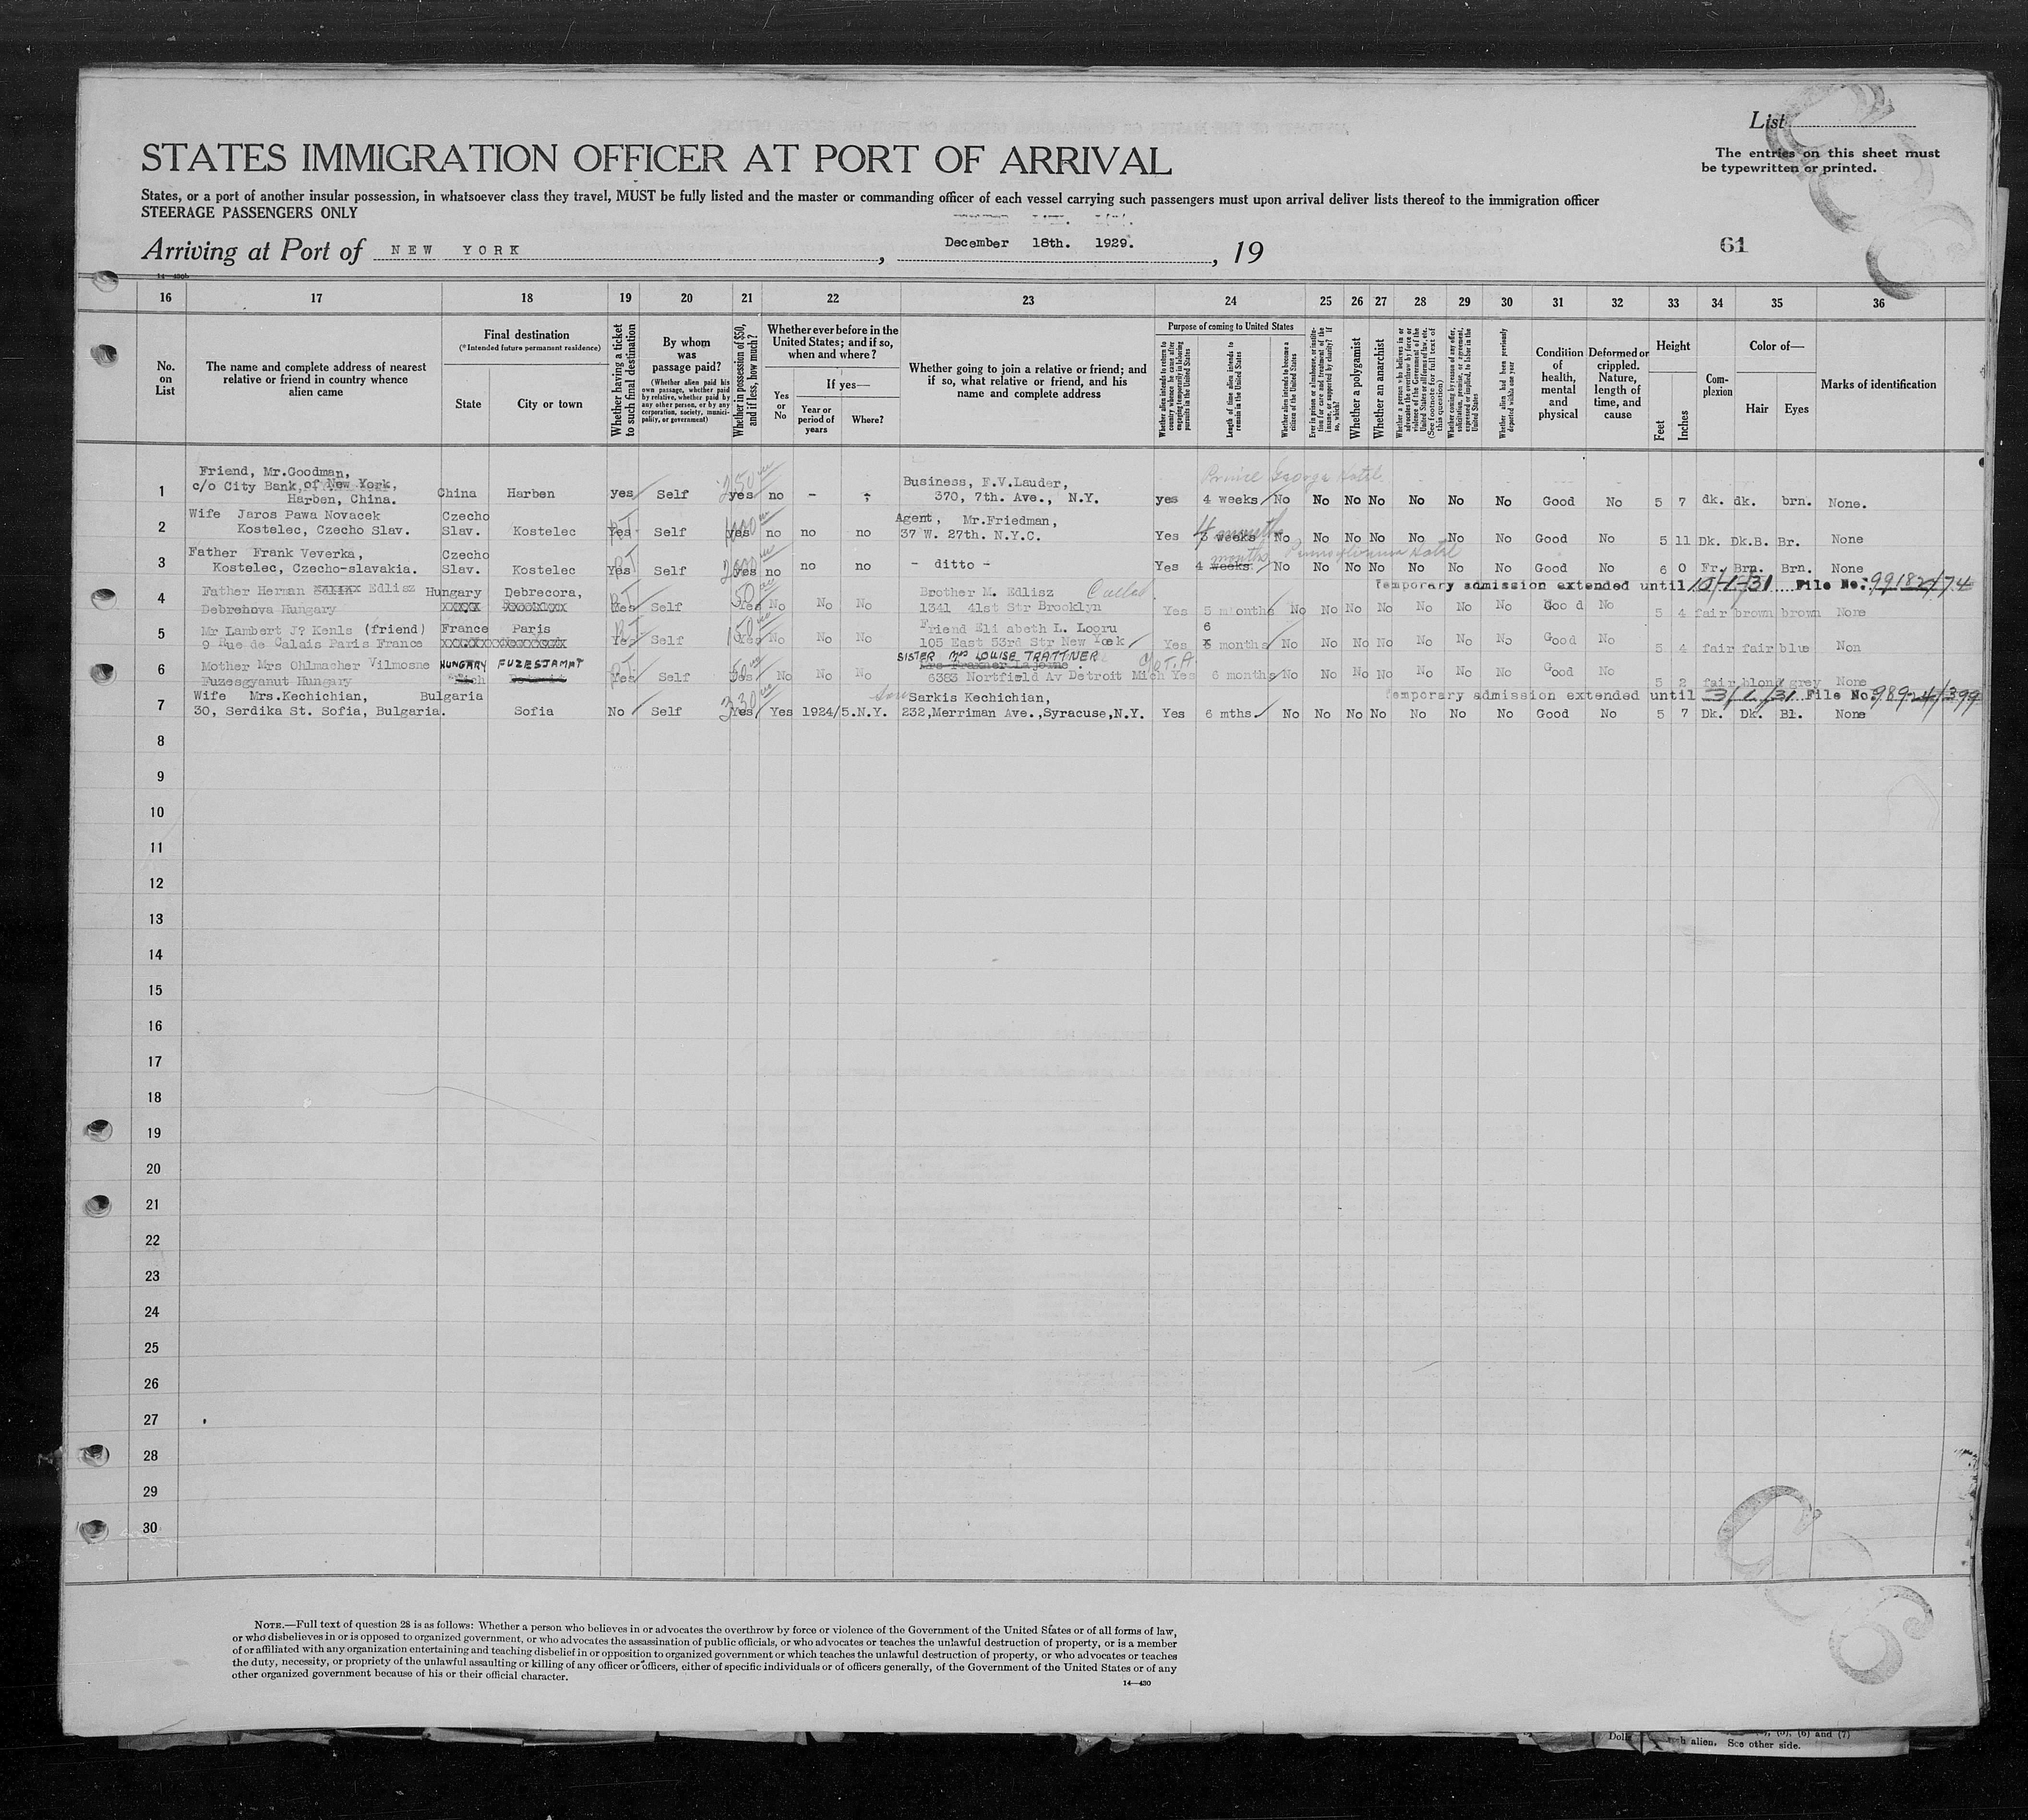 List
The entries on this sheet must
be typewritten or printed.
STATES IMMIGRATION OFFICER AT PORT OF ARRIVAL
States, or a port of another insular possession, in whatsoever class they travel, MUST be fully listed and the master or commanding officer of each vessel carrying such passengers must upon arrival deliver lists thereof to the immigration officer
STEERAGE PASSENGERS ONLY
Arriving at Port of NEW YORK, December 18th. 1929., 19
61
16 17 18 19 20 21 22 23 24 25 26 27 28 29 30 31 32 33 34 35 36
No. on List
The name and complete address of nearest relative or friend in country whence alien came
Final destination
(*Intended future permanent residence)
State
City or town
Whether having a ticket to such final destination
By whom was passage paid?
(Whether alien paid his own passage, whether paid by relative, whether paid by any other person, or by any corporation, society, municipality, or government)
Whether in possession of $50, and if less, how much?
Whether ever before in the United States; and if so, when and where?
Yes or No
If yes—
Year or period of years
Where?
Whether going to join a relative or friend; and if so, what relative or friend, and his name and complete address
Purpose of coming to United States
Length of time alien intends to remain in the United States
Whether alien intends to become a citizen of the United States
Whether a polygamist
Whether an anarchist
Condition of health, mental and physical
Deformed or crippled. Nature, length of time, and cause
Height
Feet
Inches
Complexion
Color of—
Hair
Eyes
Marks of identification
Prince George Hotel
1 Friend, Mr.Goodman, c/o City Bank, of New York, Harben, China. China Harben yes Self yes no - Business, F.V.Lauder, 370, 7th. Ave., N.Y. yes 4 weeks No No No No No No No Good No 5 7 dk. dk. brn. None.
2 Wife Jaros Pawa Novacek Kostelec, Czecho Slav. Czecho Slav. Kostelec Yes Self yes no no no Agent, Mr.Friedman, 37 W. 27th. N.Y.C. Yes 4 months weeks No No No No No No No Good No 5 11 Dk. Dk.B. Br. None
Pennsylvania Hotel
3 Father Frank Veverka, Kostelec, Czecho-slavakia. Czecho Slav. Kostelec Yes Self yes no no no - ditto - Yes 4 weeks months No No No No No No No Good No 6 0 Fr. Brn. Brn. None
Temporary admission extended until File No.
4 Father Herman Edlisz Debrehova Hungary Hungary Debrecora, Yes Self Yes No No No Brother M. Edlisz 1341 41st Str Brooklyn Yes 5 months No No No No No No No Good No 5 4 fair brown brown None
5 Mr Lambert J? Kenls (friend) 9 Rue de Calais Paris France France Paris Yes Self Yes No No No Friend Eli abeth L. Looru 105 East 53rd Str New Yoek Yes 6 months No No No No No No No Good No 5 4 fair fair blue Non
6 Mother Mrs Ohlmacher Vilmosne Fuzesgyanut Hungary HUNGARY FUZESJAMAT Yes Self Yes No No No SISTER Mrs LOUISE TRATTNER 6383 Nortfield Av Detroit Mich Yes 6 months No No No No No No No Good No 5 2 fair blond grey None
Temporary admission extended until 3/1/31 File No.
7 Wife Mrs.Kechichian, 30, Serdika St. Sofia, Bulgaria. Bulgaria Sofia No Self Yes Yes 1924/5. N.Y. Son Sarkis Kechichian, 232,Merriman Ave.,Syracuse,N.Y. Yes 6 mths. No No No No No No No Good No 5 7 Dk. Dk. Bl. None
8
9
10
11
12
13
14
15
16
17
18
19
20
21
22
23
24
25
26
27
28
29
30
NOTE.—Full text of question 28 is as follows: Whether a person who believes in or advocates the overthrow by force or violence of the Government of the United States or of all forms of law,
or who disbelieves in or is opposed to organized government, or who advocates the assassination of public officials, or who advocates or teaches the unlawful destruction of property, or is a member
of or affiliated with any organization entertaining and teaching disbelief in or opposition to organized government or which teaches the unlawful destruction of property, or who advocates or teaches
the duty, necessity, or propriety of the unlawful assaulting or killing of any officer or officers, either of specific individuals or of officers generally, of the Government of the United States or of any
other organized government because of his or their official character.
14—430
(6) and (7)
alien. See other side.